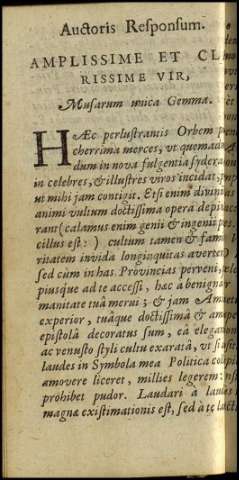 Auctoris Responsum.
AMPLISSIME ET CL
RISSIME VIR,
Musarum unica Gemma.
HÆc perlustrantis Orbem
cherrima merces, vt quemad
dum in nova fulgentia sydera
in celebres, & illustres viros incidat,
ut mihi jam contigit. Etsi enim divin
animi vultum doctissima opera
rant (calamus enim genii & ingenii
cillus est:) cultum tamen &
ritatem invida longinquitas averte
sed cum in has Provincias perveni,
piusque ad te accessi, hac a benigna
manitate tuâ merui; & jam
experior, tuâque doctissimâ &
epistolâ decoratus sum, eâ elegan
ac venusto styli cultu exaratâ, vt si
laudes in Symbola mea Politica
amovere liceret, millies legerem:
prohibet pudor. Laudari à
magna existimationis est, sed à te